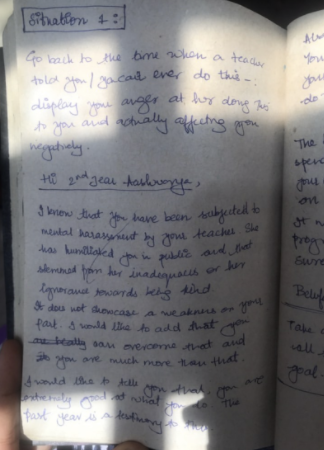 Situation 1 :
Go back to the time when a teacher
told you / ever do this - :
display your anger at her doing this
to you and actually affecting you
negatively.
Hi 2nd year Aishwarya,
I know that you have been subjected to
mental harassment by your teacher. She
has humiliated you in public and that
stemmed from her inadequacies or her
ignorance towards being kind.
It does not showcase a weakness on your
part. I would like to add that you
can overcome that and
you are much more than that.
I would like to tell you that, you are
extremely good at what you do. The
past year is a testimony to
Alw
You
you
do
The
your
on
It n
prog
Belief
Take a
all
goal.